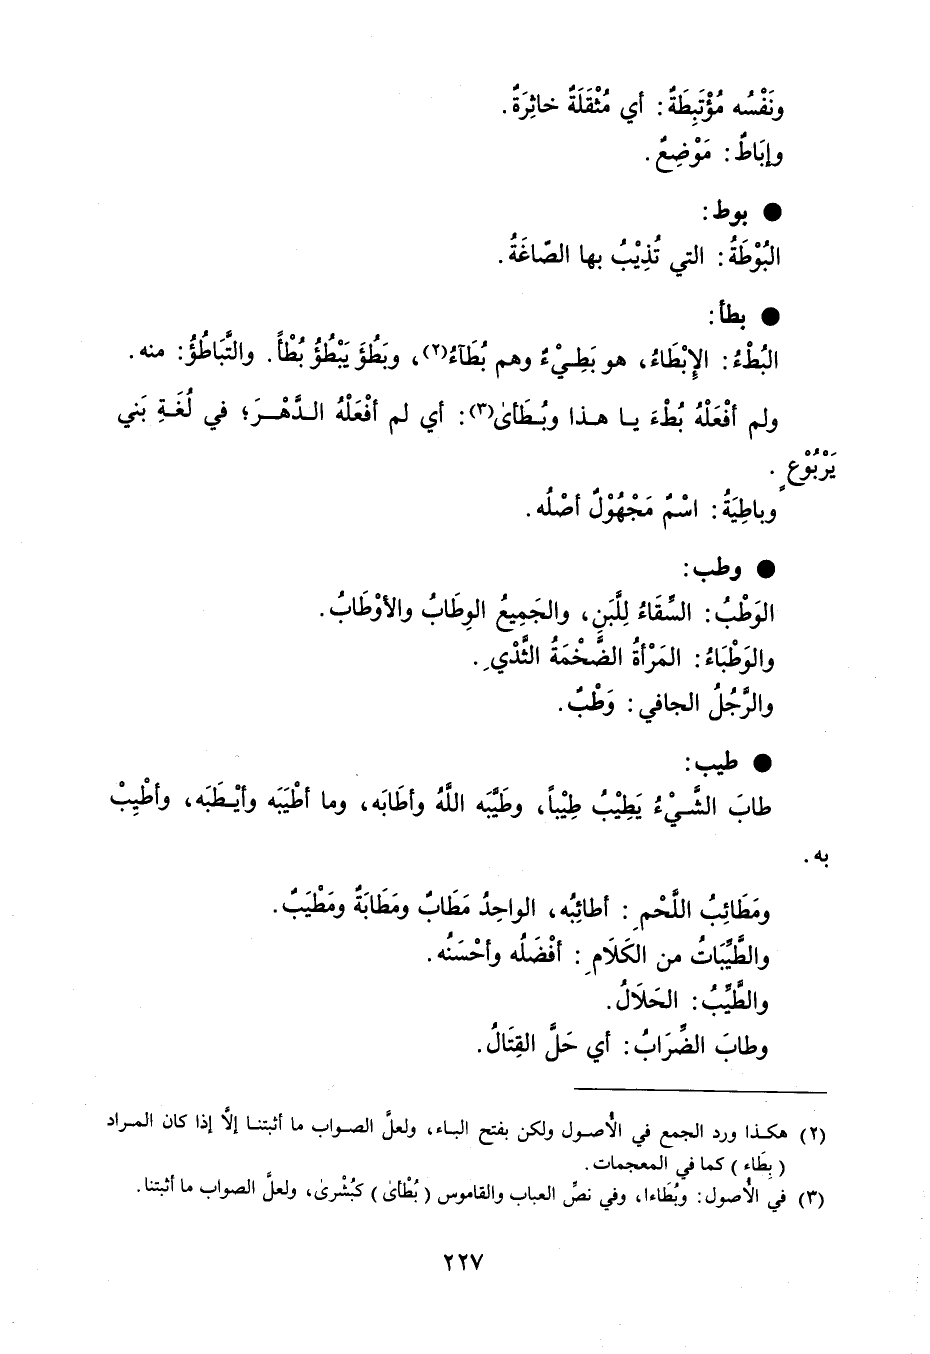 ونَفْسُه مُؤْتَبِطَةٌ: أي مُثْقَلَةٌ خاثِرَةٌ.
وإبَاطٌ: مَوْضِعٌ.
● بوط:
البُوْطَةُ: التي تُذِيْبُ بها الصّاغَةُ.
● بطأ:
البُطْءُ: الإِبْطَاءُ، هو بَطِيْءٌ وهم بُطَآءُ(٢)، وبَطُؤَ يَبْطُؤُ بُطْأً. والتَّبَاطُؤُ: منه.
ولم أفْعَلْهُ بُطْءَ يا هذا وبُطَأىٰ(٣): أي لم أفْعَلْهُ الدَّهْرَ؛ في لُغَةِ بَني
يَرْبُوْعٍ.
وباطِيَةُ: اسْمٌ مَجْهُوْلٌ أصْلُه.
● وطب:
الوَطْبُ: السِّقَاءُ لِلَّبَنِ، والجَمِيعُ الوِطَابُ والأوْطَابُ.
والوَطْبَاءُ: المَرْأةُ الضَّخْمَةُ الثَّدْيِ.
والرَّجُلُ الجافي: وَطْبٌ.
● طيب:
طابَ الشَّيْءُ يَطِيْبُ طِيْباً، وطَيَّبَه اللَّهُ وأطَابَه، وما أطْيَبَه وأيْطَبَه، وأطْيِبْ
به.
ومَطَائِبُ اللَّحْمِ: أطائِبُه، الواحِدُ مَطَابٌ ومَطَابَةٌ ومَطْيَبٌ.
والطَّيِّبَاتُ من الكَلَامِ: أفْضَلُه وأحْسَنُه.
والطَّيِّبُ: الحَلَالُ.
وطابَ الضِّرَابُ: أي حَلَّ القِتَالُ.
(٢) هكذا ورد الجمع في الأُصول ولكن بفتح الباء، ولعلَّ الصواب ما أثبتنا إلاَّ إذا كان المراد
(بِطَاء) كما في المعجمات.
(٣) في الأُصول: وبُطَاءا، وفي نصِّ العباب والقاموس (بُطْأىٰ) كبُشْرىٰ، ولعلَّ الصواب ما أثبتنا.
٢٢٧